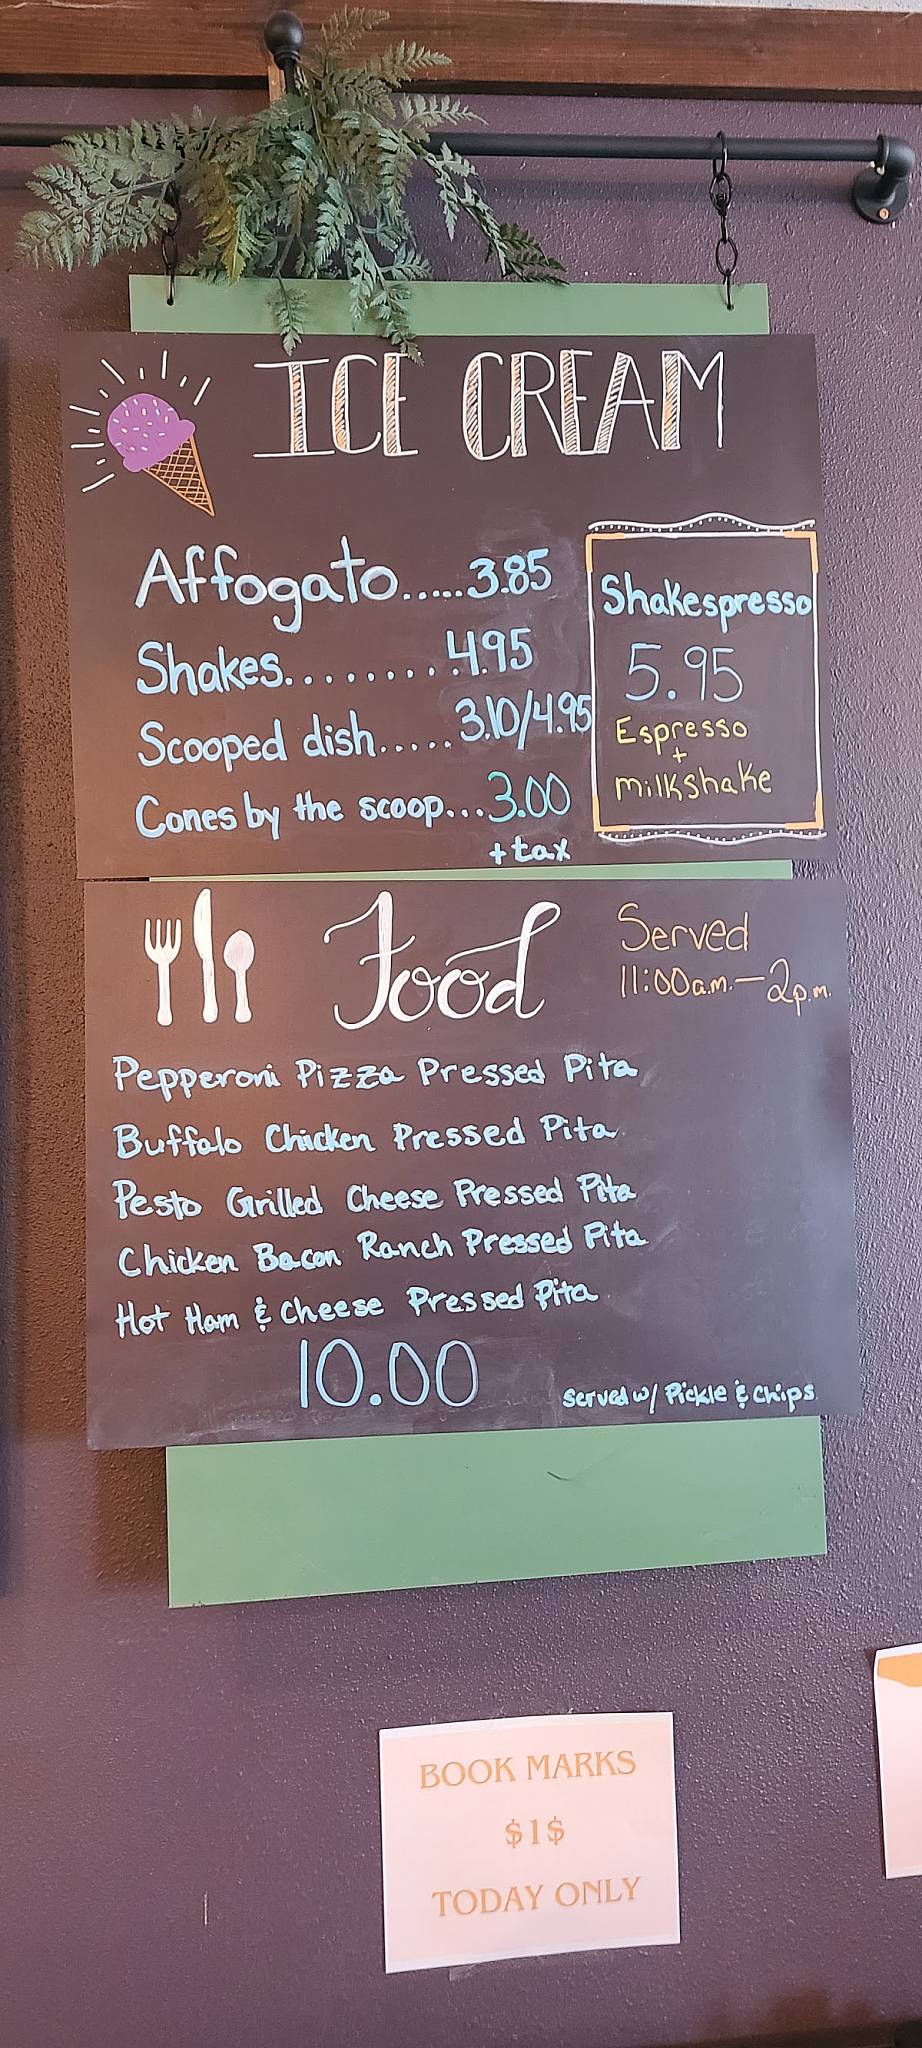 ICE CREAM
Affogato.....3.85
Shakes.........4.95
Scooped dish.....3.10/4.95
Cones by the scoop...3.00
+tax
Shakespresso
5.95
Espresso
+
milkshake
Food
Served
11:00a.m.—2p.m.
Pepperoni Pizza Pressed Pita
Buffalo Chicken Pressed Pita
Pesto Grilled Cheese Pressed Pita
Chicken Bacon Ranch Pressed Pita
Hot Ham & Cheese Pressed Pita
10.00
Served w/ Pickle & Chips
BOOK MARKS
$1$
TODAY ONLY